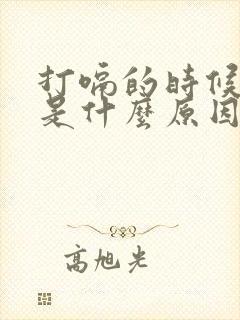 打嗝的時候
是什麼原因
高旭光